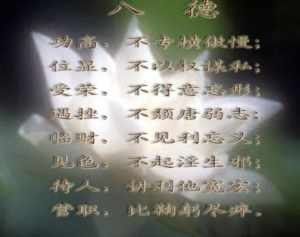 八 德
功高，不专横傲慢；
位显，不以权谋私；
受荣，不得意忘形；
遇挫，不颓唐弱志；
临财，不见利忘义；
见色，不起淫生邪；
待人，讲
职，比鞠躬尽瘁。